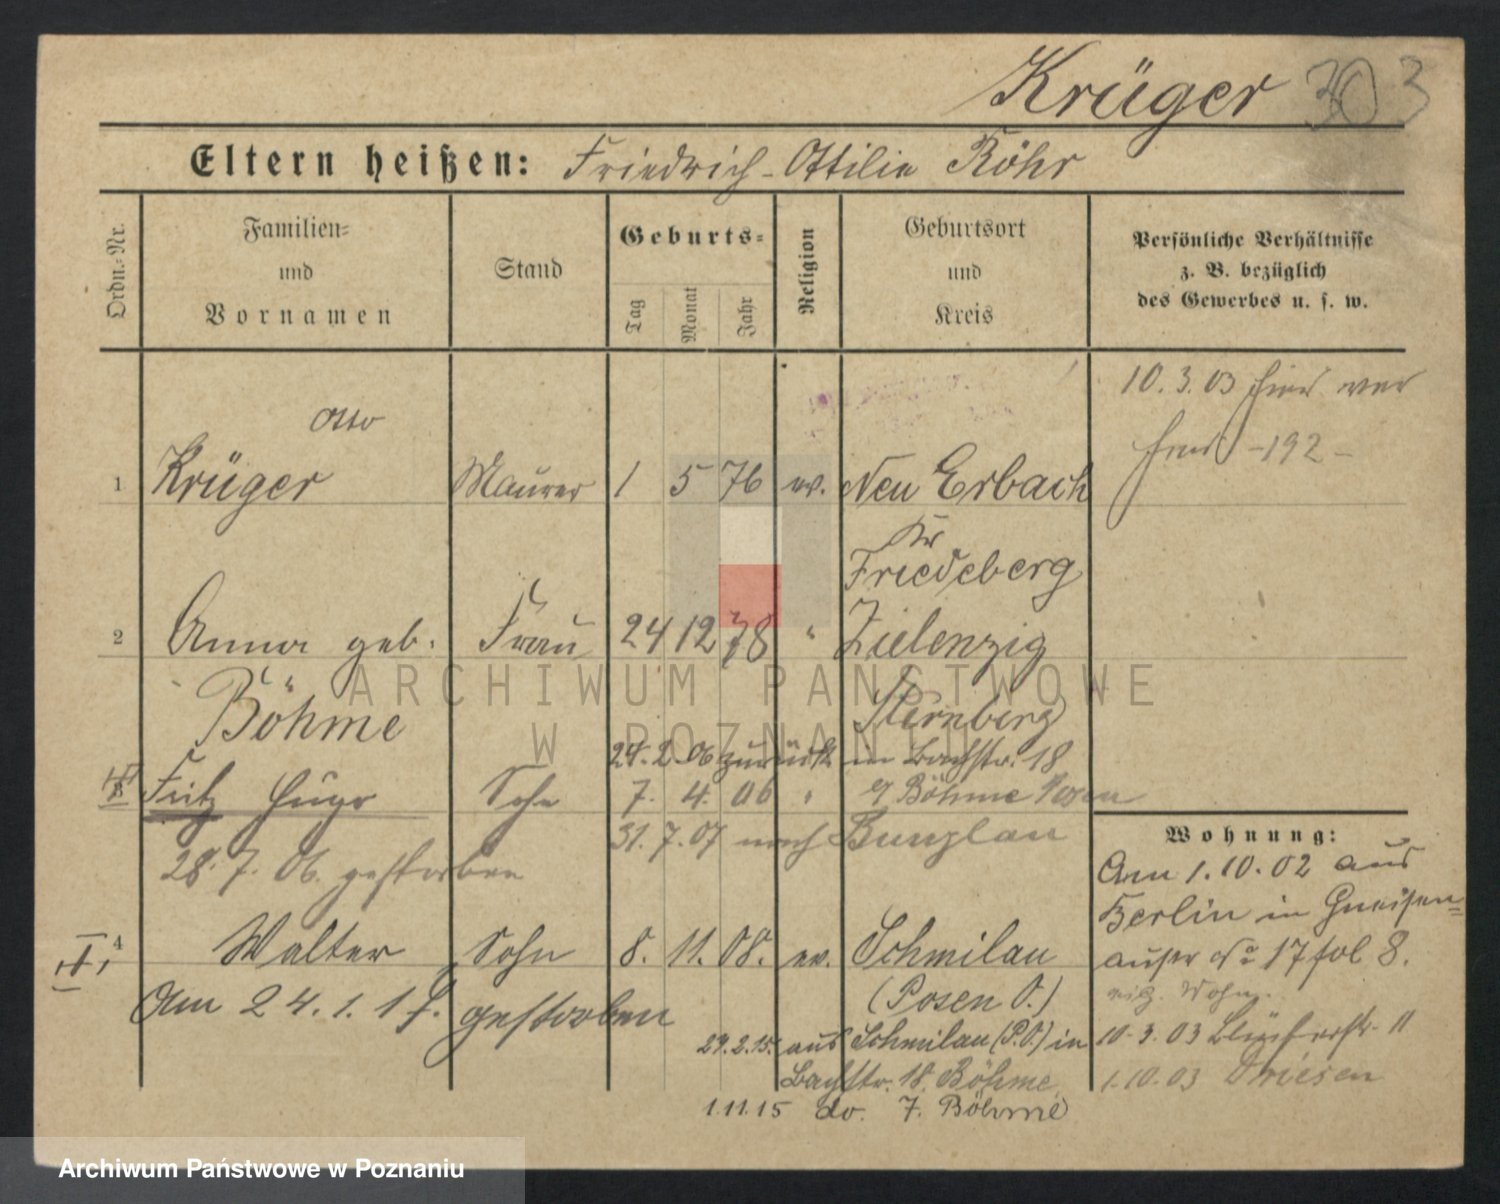 Krüger 303
Eltern heißen: Friedrich - Ottilie Röhr
Ordn.-Nr.
Familien-
und
Vornamen
Stand
Geburts-
Tag
Monat
Jahr
Religion
Geburtsort
und
Kreis
Persönliche Verhältnisse
z. B. bezüglich
des Gewerbes u. s. w.
10.3.03
-192-
Otto
1 Krüger Maurer 1 5 76 ev. Neu Erbach
Kr
Friedeberg
2 Anna geb. Frau 24 12 78 " Zielenzig
Böhme Sternberg
24.2.06 zurück in Bachstr. 18
Fritz Hugo Sohn 7. 4. 06 " Böhme Posen
31.7.07 nach Bunzlau
28.7.06. gestorben
4 Walter Sohn 8. 11. 08. ev. Schmilau
(Posen O.)
Am 24.1.1 gestorben
24.2.15. aus Schmilau (P.O.) in
Bachstr. 18. Böhme
1.11.15 do. 7. Böhme
Wohnung:
Am 1.10.02 aus
Berlin in Gneisen=
außer No 17 fol 8.
10.3.03 Blücherstr. 11
1.10.03 Driesen
ARCHIWUM PAŃSTWOWE
W POZNANIU
Archiwum Państwowe w Poznaniu